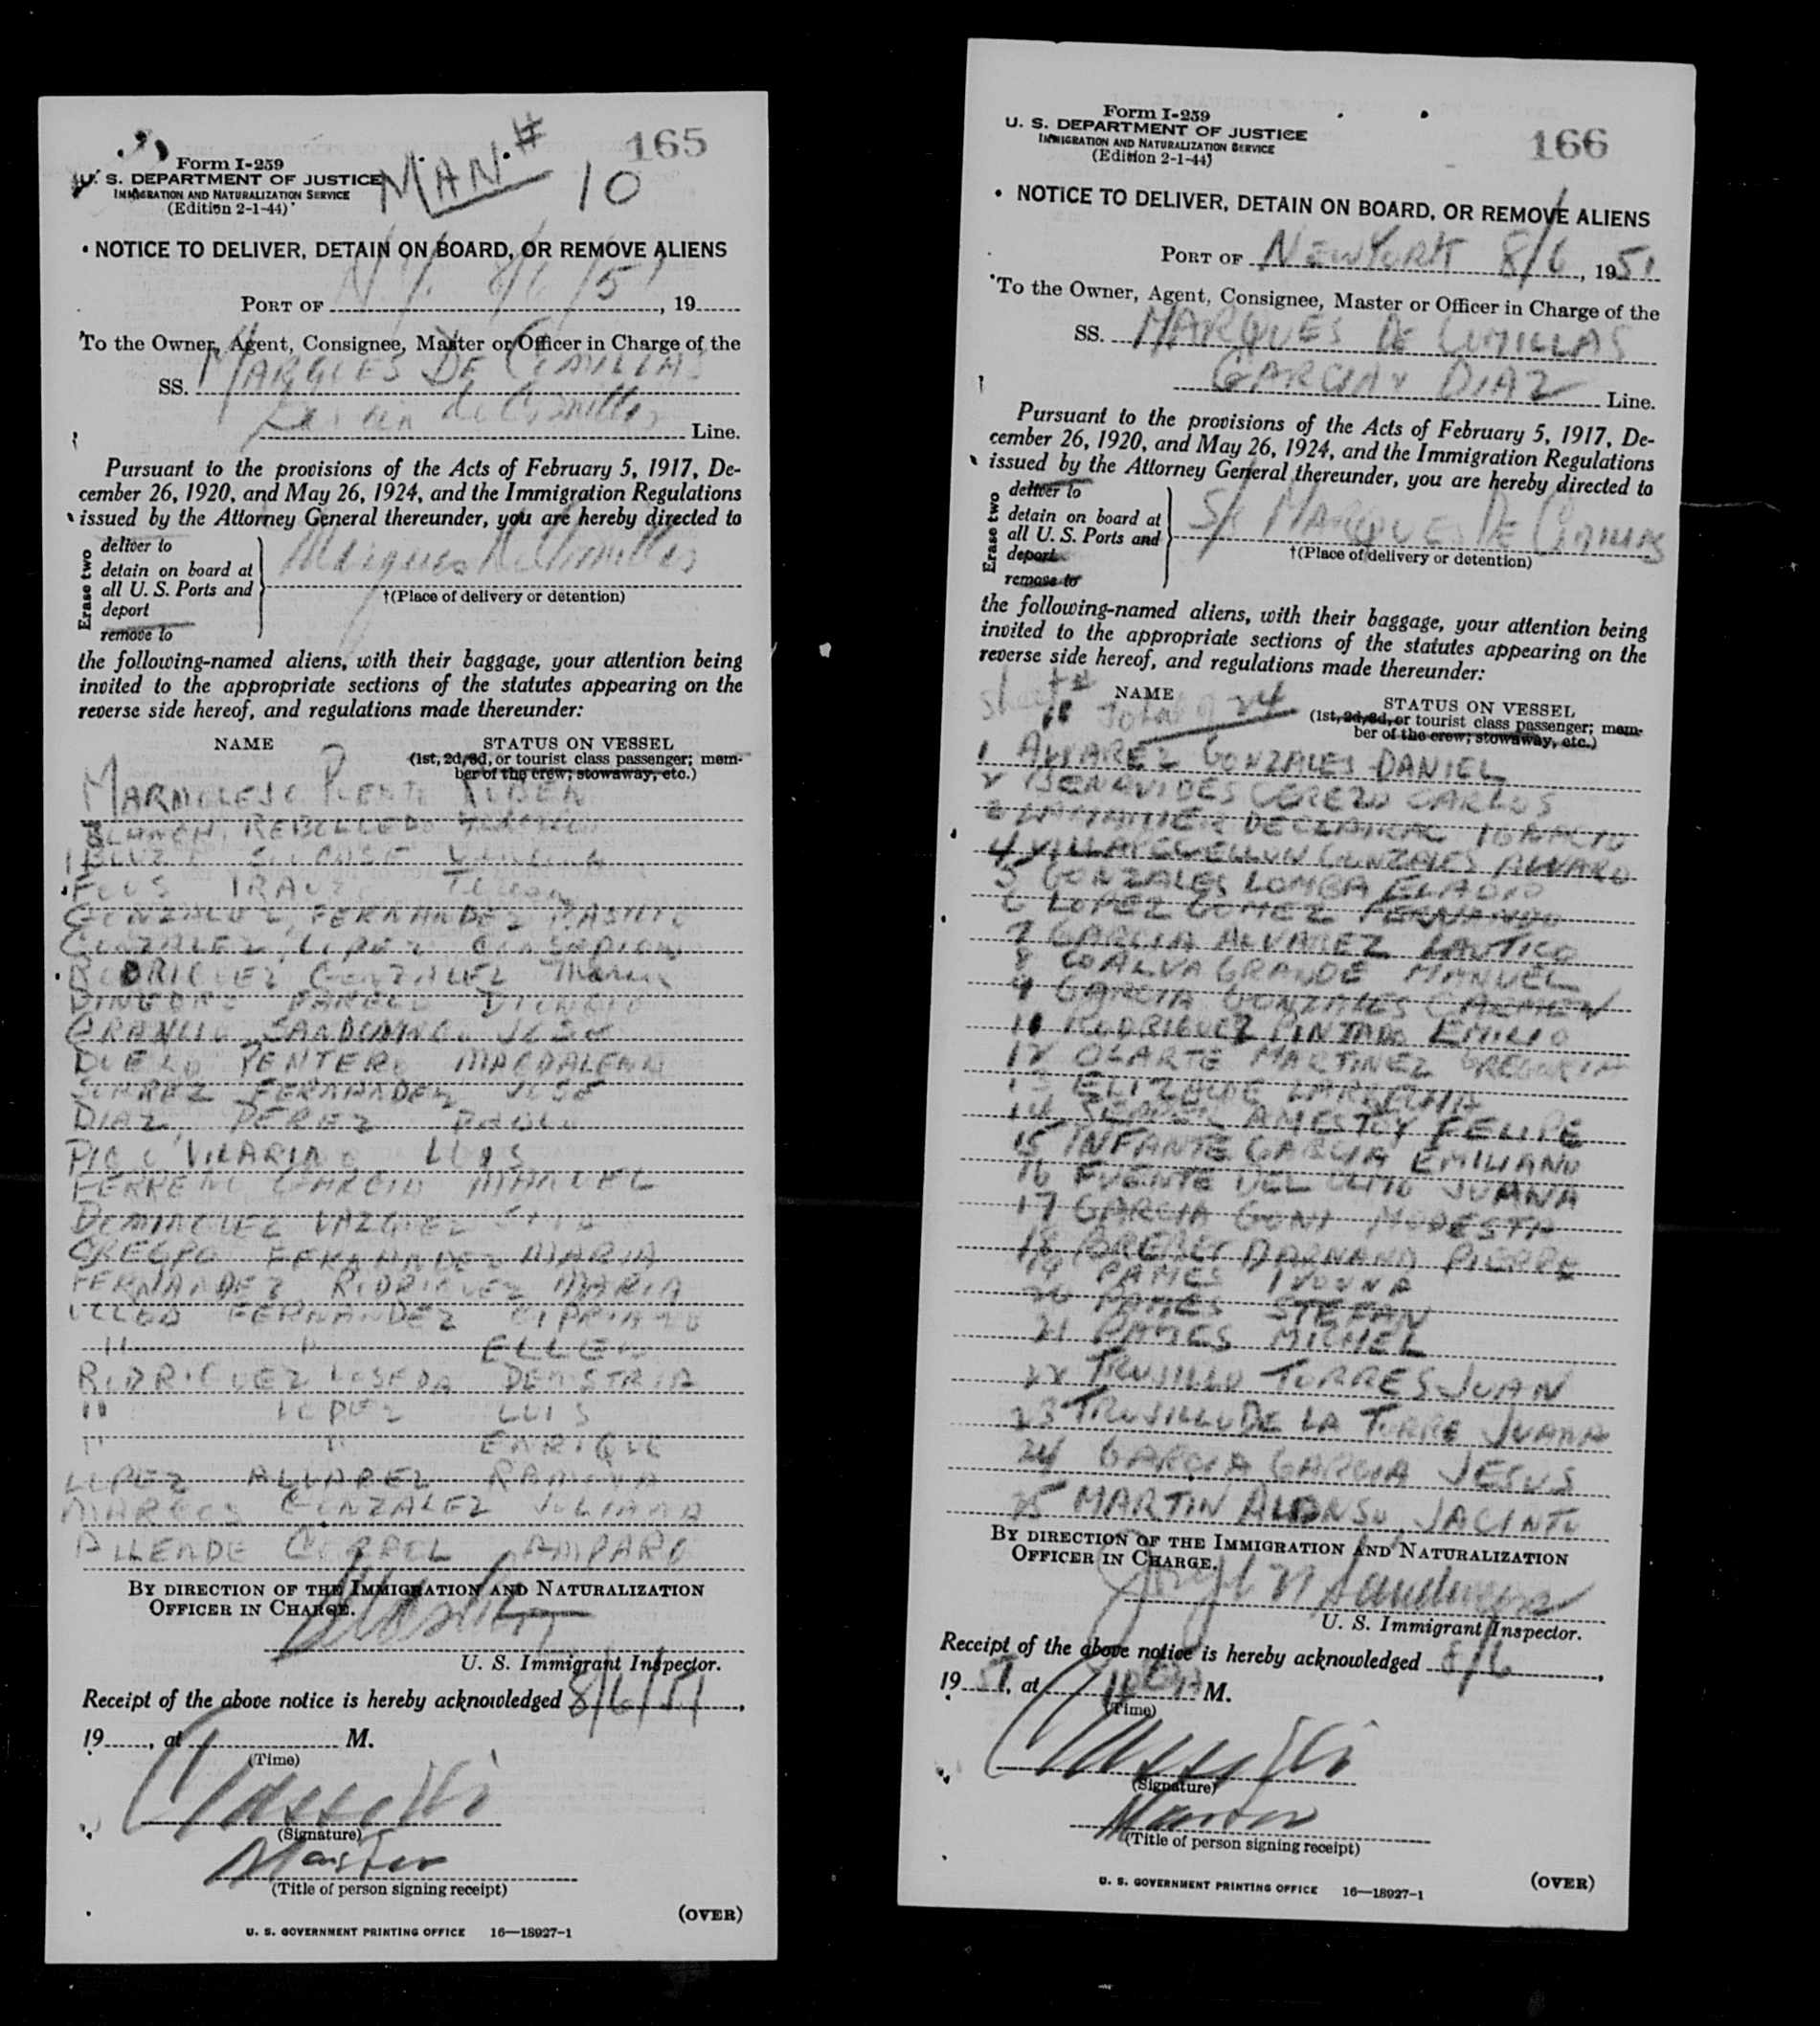 165
MAN. # 10
Form I-259
U. S. DEPARTMENT OF JUSTICE
IMMIGRATION AND NATURALIZATION SERVICE
(Edition 2-1-44)
NOTICE TO DELIVER, DETAIN ON BOARD, OR REMOVE ALIENS
PORT OF N.Y. 8/6/51, 19
To the Owner, Agent, Consignee, Master or Officer in Charge of the
SS. MARQUES DE COMILLAS
de Comillas Line.
Pursuant to the provisions of the Acts of February 5, 1917, De-
cember 26, 1920, and May 26, 1924, and the Immigration Regulations
issued by the Attorney General thereunder, you are hereby directed to
Erase two
deliver to
detain on board at
all U. S. Ports and
deport
remove to
Marques de Comillas
†(Place of delivery or detention)
the following-named aliens, with their baggage, your attention being
invited to the appropriate sections of the statutes appearing on the
reverse side hereof, and regulations made thereunder:
NAME
STATUS ON VESSEL
(1st, 2d, 3d, or tourist class passenger; mem-
ber of the crew; stowaway, etc.)
RUBEN
REBOLLEDO
GONZALEZ FERNANDEZ
GONZALEZ LOPEZ
RODRIGUEZ GONZALEZ Maria
SANDOMINGO JOSE
PENTERO MAGDALENA
SUAREZ FERNANDEZ JOSE
DIAZ PEREZ
VILARINO LUIS
GARCIA MANUEL
DOMINGUEZ VAZQUEZ
CRESPO FERNANDEZ MARIA
FERNANDEZ RODRIGUEZ MARIA
FERNANDEZ CIPRIANO
" " ELLEN
RODRIGUEZ LOSEDA
" LOPEZ LUIS
" " ENRIQUE
LOPEZ ALVAREZ RAMONA
MARCOS GONZALEZ JULIANA
ALLENDE AMPARO
BY DIRECTION OF THE IMMIGRATION AND NATURALIZATION
OFFICER IN CHARGE.
U. S. Immigrant Inspector.
Receipt of the above notice is hereby acknowledged 8/6/51,
19, at M.
(Time)
(Signature)
Master
(Title of person signing receipt)
(OVER)
U. S. GOVERNMENT PRINTING OFFICE 16—18927-1
166
Form I-259
U. S. DEPARTMENT OF JUSTICE
IMMIGRATION AND NATURALIZATION SERVICE
(Edition 2-1-44)
NOTICE TO DELIVER, DETAIN ON BOARD, OR REMOVE ALIENS
PORT OF NEW YORK 8/6, 1951
To the Owner, Agent, Consignee, Master or Officer in Charge of the
SS. MARQUES DE COMILLAS
GARCIA Y DIAZ Line.
Pursuant to the provisions of the Acts of February 5, 1917, De-
cember 26, 1920, and May 26, 1924, and the Immigration Regulations
issued by the Attorney General thereunder, you are hereby directed to
Erase two
deliver to
detain on board at
all U. S. Ports and
deport
remove to
S/S MARQUES DE COMILLAS
†(Place of delivery or detention)
the following-named aliens, with their baggage, your attention being
invited to the appropriate sections of the statutes appearing on the
reverse side hereof, and regulations made thereunder:
Sheet #
NAME
Total of 24
STATUS ON VESSEL
(1st, 2d, 3d, or tourist class passenger; mem-
ber of the crew; stowaway, etc.)
1 ALVAREZ GONZALES DANIEL
2 BENAVIDES CEREZO CARLOS
IGNACIO
4 GONZALES ALVARO
5 GONZALES LOMBA ELADIO
6 LOPEZ GOMEZ FERNANDO
7 GARCIA ALVAREZ LAUTICO
8 GRANDE MANUEL
9 GARCIA GONZALES CARMEN
RODRIGUEZ PINTADO EMILIO
12 OLARTE MARTINEZ
13 ELIZALDE
14 AMESTOY FELIPE
15 INFANTE GARCIA EMILIANO
16 FUENTE DEL JUANA
17 GARCIA GONI MODESTA
18 PIERRE
19 PAMES
20 PAMES STEFAN
21 PAMES MICHEL
22 TRUJILLO TORRES JUAN
23 TRUJILLO DE LA TORRE JUANA
24 GARCIA GARCIA JESUS
25 MARTIN ALONSO, JACINTO
BY DIRECTION OF THE IMMIGRATION AND NATURALIZATION
OFFICER IN CHARGE.
U. S. Immigrant Inspector.
Receipt of the above notice is hereby acknowledged 8/6,
1951, at M.
(Time)
(Signature)
Master
(Title of person signing receipt)
(OVER)
U. S. GOVERNMENT PRINTING OFFICE 16—18927-1